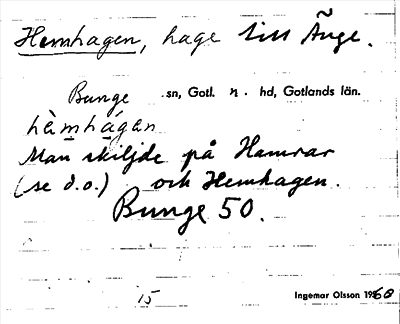 Hemhagen, hage till Änge.
Bunge sn, Gotl. n. hd, Gotlands län.
hàmhágen
Man skiljde på Hamrar
(se d.o.) och Hemhagen.
Bunge 50.
15
Ingemar Olsson 1960